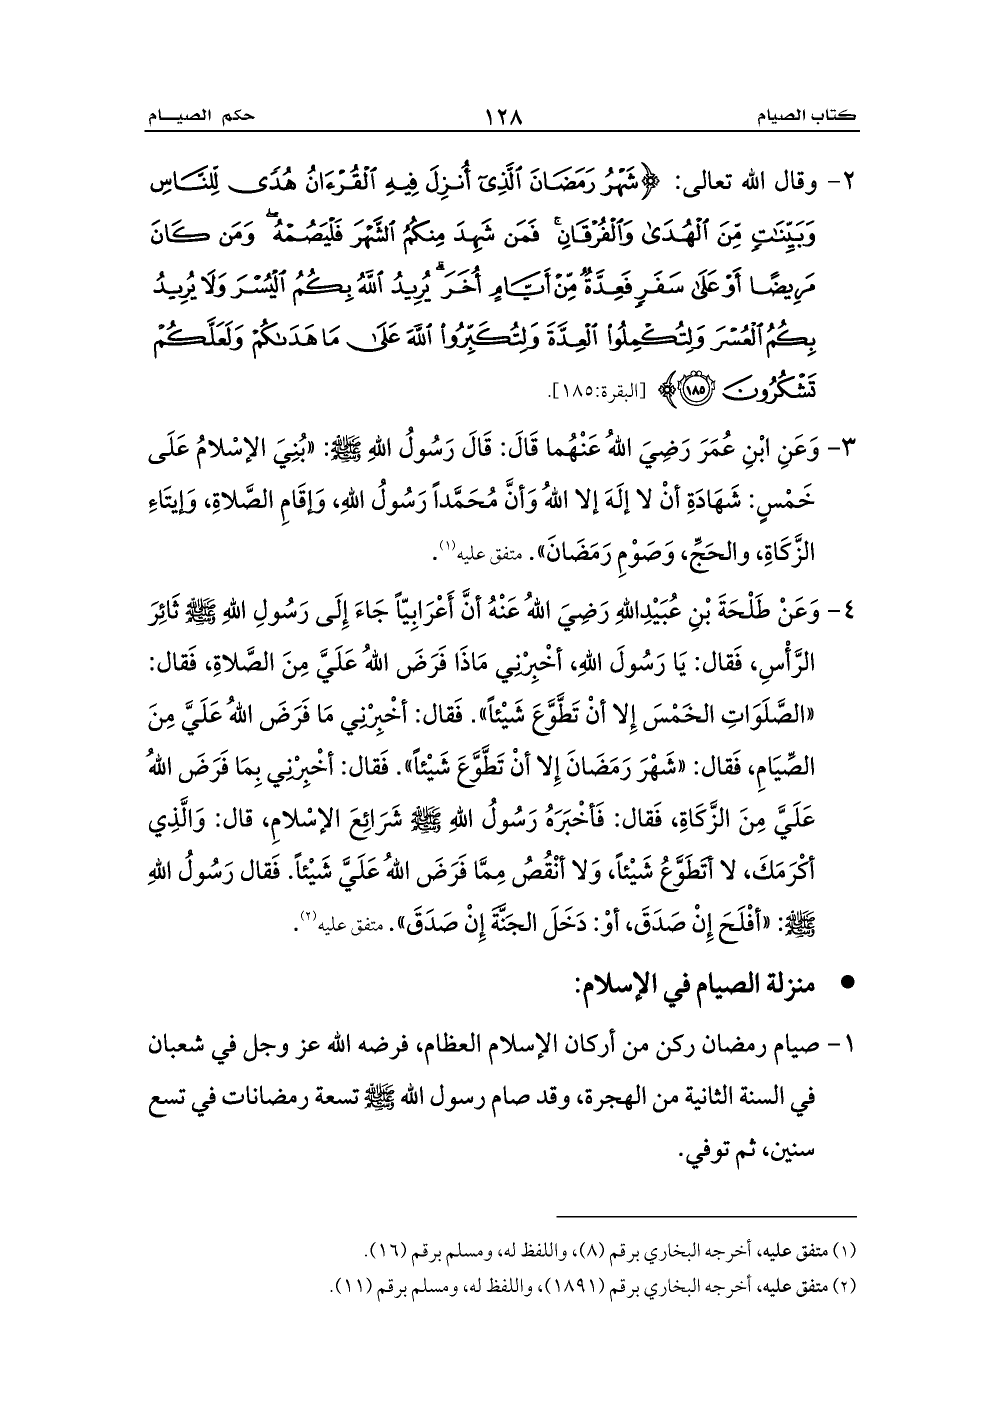 كتاب الصيام ١٢٨ حكم الصيـــام
٢- وقال الله تعالى: ﴿شَهْرُ رَمَضَانَ ٱلَّذِىٓ أُنزِلَ فِيهِ ٱلْقُرْءَانُ هُدًى لِّلنَّاسِ
وَبَيِّنَٰتٍ مِّنَ ٱلْهُدَىٰ وَٱلْفُرْقَانِ ۚ فَمَن شَهِدَ مِنكُمُ ٱلشَّهْرَ فَلْيَصُمْهُ ۖ وَمَن كَانَ
مَرِيضًا أَوْ عَلَىٰ سَفَرٍ فَعِدَّةٌ مِّنْ أَيَّامٍ أُخَرَ ۗ يُرِيدُ ٱللَّهُ بِكُمُ ٱلْيُسْرَ وَلَا يُرِيدُ
بِكُمُ ٱلْعُسْرَ وَلِتُكْمِلُوا۟ ٱلْعِدَّةَ وَلِتُكَبِّرُوا۟ ٱللَّهَ عَلَىٰ مَا هَدَىٰكُمْ وَلَعَلَّكُمْ
تَشْكُرُونَ ١٨٥﴾ [البقرة:١٨٥].
٣- وَعَنِ ابْنِ عُمَرَ رَضِيَ اللهُ عَنْهُما قَالَ: قَالَ رَسُولُ اللهِ ﷺ: «بُنِيَ الإسْلامُ عَلَى
خَمْسٍ: شَهَادَةِ أنْ لا إلَهَ إلا اللهُ وَأنَّ مُحَمَّداً رَسُولُ اللهِ، وَإقَامِ الصَّلاةِ، وَإيتَاءِ
الزَّكَاةِ، والحَجِّ، وَصَوْمِ رَمَضَانَ». متفق عليه(١).
٤- وَعَنْ طَلْحَةَ بْنِ عُبَيْدِاللهِ رَضِيَ اللهُ عَنْهُ أنَّ أَعْرَابِيّاً جَاءَ إلَى رَسُولِ اللهِ ﷺ ثَائِرَ
الرَّأْسِ، فَقال: يَا رَسُولَ اللهِ، أخْبِرْنِي مَاذَا فَرَضَ اللهُ عَلَيَّ مِنَ الصَّلاةِ، فَقال:
«الصَّلَوَاتِ الخَمْسَ إلا أنْ تَطَّوَّعَ شَيْئاً». فَقال: أخْبِرْنِي مَا فَرَضَ اللهُ عَلَيَّ مِنَ
الصِّيَامِ، فَقال: «شَهْرَ رَمَضَانَ إلا أنْ تَطَّوَّعَ شَيْئاً». فَقال: أخْبِرْنِي بِمَا فَرَضَ اللهُ
عَلَيَّ مِنَ الزَّكَاةِ، فَقال: فَأخْبَرَهُ رَسُولُ اللهِ ﷺ شَرَائِعَ الإسْلامِ، قال: وَالَّذِي
أكْرَمَكَ، لا أتَطَوَّعُ شَيْئاً، وَلا أنْقُصُ مِمَّا فَرَضَ اللهُ عَلَيَّ شَيْئاً. فَقال رَسُولُ اللهِ
ﷺ: «أفْلَحَ إنْ صَدَقَ، أوْ: دَخَلَ الجَنَّةَ إنْ صَدَقَ». متفق عليه(٢).
● منزلة الصيام في الإسلام:
١- صيام رمضان ركن من أركان الإسلام العظام، فرضه الله عز وجل في شعبان
في السنة الثانية من الهجرة، وقد صام رسول الله ﷺ تسعة رمضانات في تسع
سنين، ثم توفي.
(١) متفق عليه، أخرجه البخاري برقم (٨)، واللفظ له، ومسلم برقم (١٦).
(٢) متفق عليه، أخرجه البخاري برقم (١٨٩١)، واللفظ له، ومسلم برقم (١١).